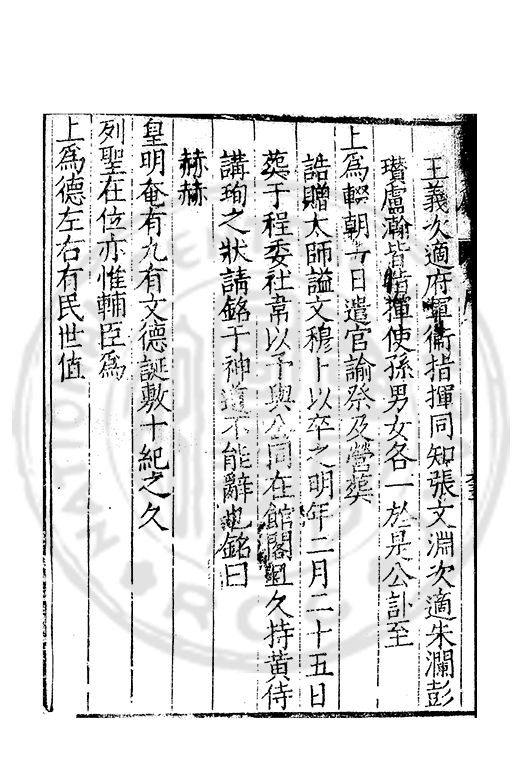 王義次適府軍衞指揮同知張文淵次適朱瀾彭
瓚盧瀚皆指揮使孫男女各一於是公訃至
上為輟朝一日遣官諭祭及營葬
誥贈太師謚文穆卜以卒之明年二月二十五日
葬于程委社韋以予與公同在館閣且久持黄侍
講珣之狀請銘于神道不能辭也銘曰
赫赫
皇明奄有九有文德誕敷十紀之久
列聖在位亦惟輔臣為
上為德左右有民世值